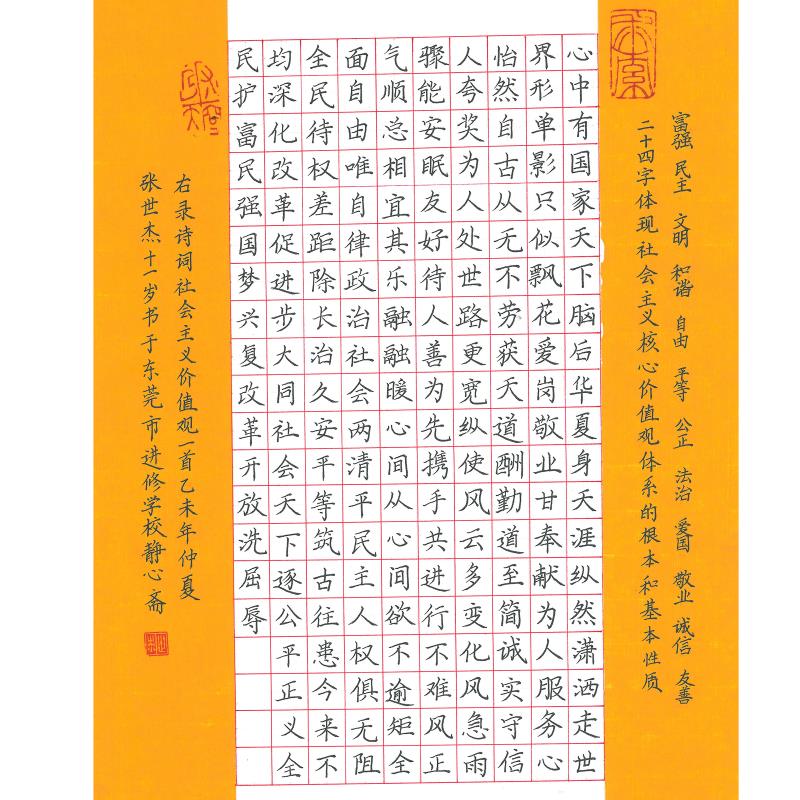 富强 民主 文明 和谐 自由 平等 公正 法治 爱国 敬业 诚信 友善
二十四字体现社会主义核心价值观体系的根本和基本性质
心中有国家天下脑后华夏身天涯纵然潇洒走世
界形单影只似飘花爱岗敬业甘奉献为人服务心
怡然自古从无不劳获天道酬勤道至简诚实守信
人夸奖为人处世路更宽纵使风云多变化风急雨
骤能安眠友好待人善为先携手共进行不难风正
气顺总相宜其乐融融暖心间从心间欲不逾矩全
面自由唯自律政治社会两清平民主人权俱无阻
全民待权差距除长治久安平等筑古往患今来不
均深化改革促进步大同社会天下逐公平正义全
民护富民强国梦兴复改革开放洗屈辱
右录诗词社会主义价值观一首乙未年仲夏
张世杰十一岁书于东莞市进修学校静心斋